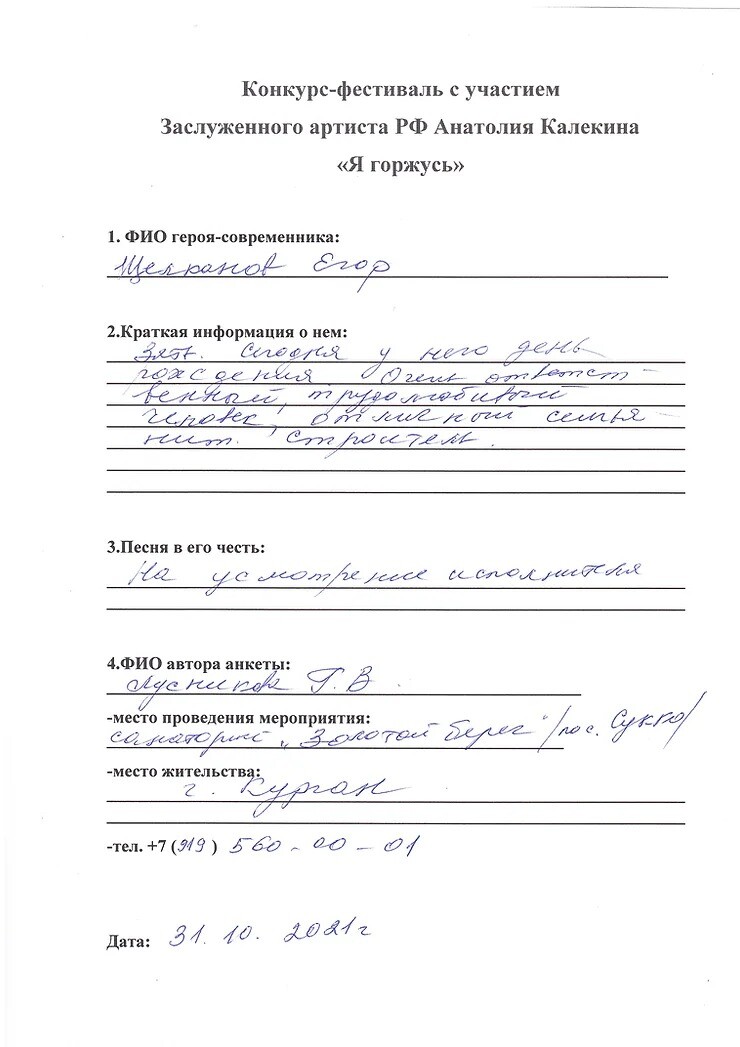 Конкурс-фестиваль с участием
Заслуженного артиста РФ Анатолия Калекина
«Я горжусь»
1. ФИО героя-современника:
Щелканов Егор
2.Краткая информация о нем:
Зять. Сегодня у него день
рождения. Очень ответст-
венный, трудолюбивый
человек, отличный семья-
нин. Строитель.
3.Песня в его честь:
На усмотрение исполнителя
4.ФИО автора анкеты:
Г. В.
-место проведения мероприятия:
санаторий „Золотой берег" /пос. Сукко/
-место жительства:
г. Курган
-тел. +7 (919) 560-00-01
Дата: 31. 10. 2021г